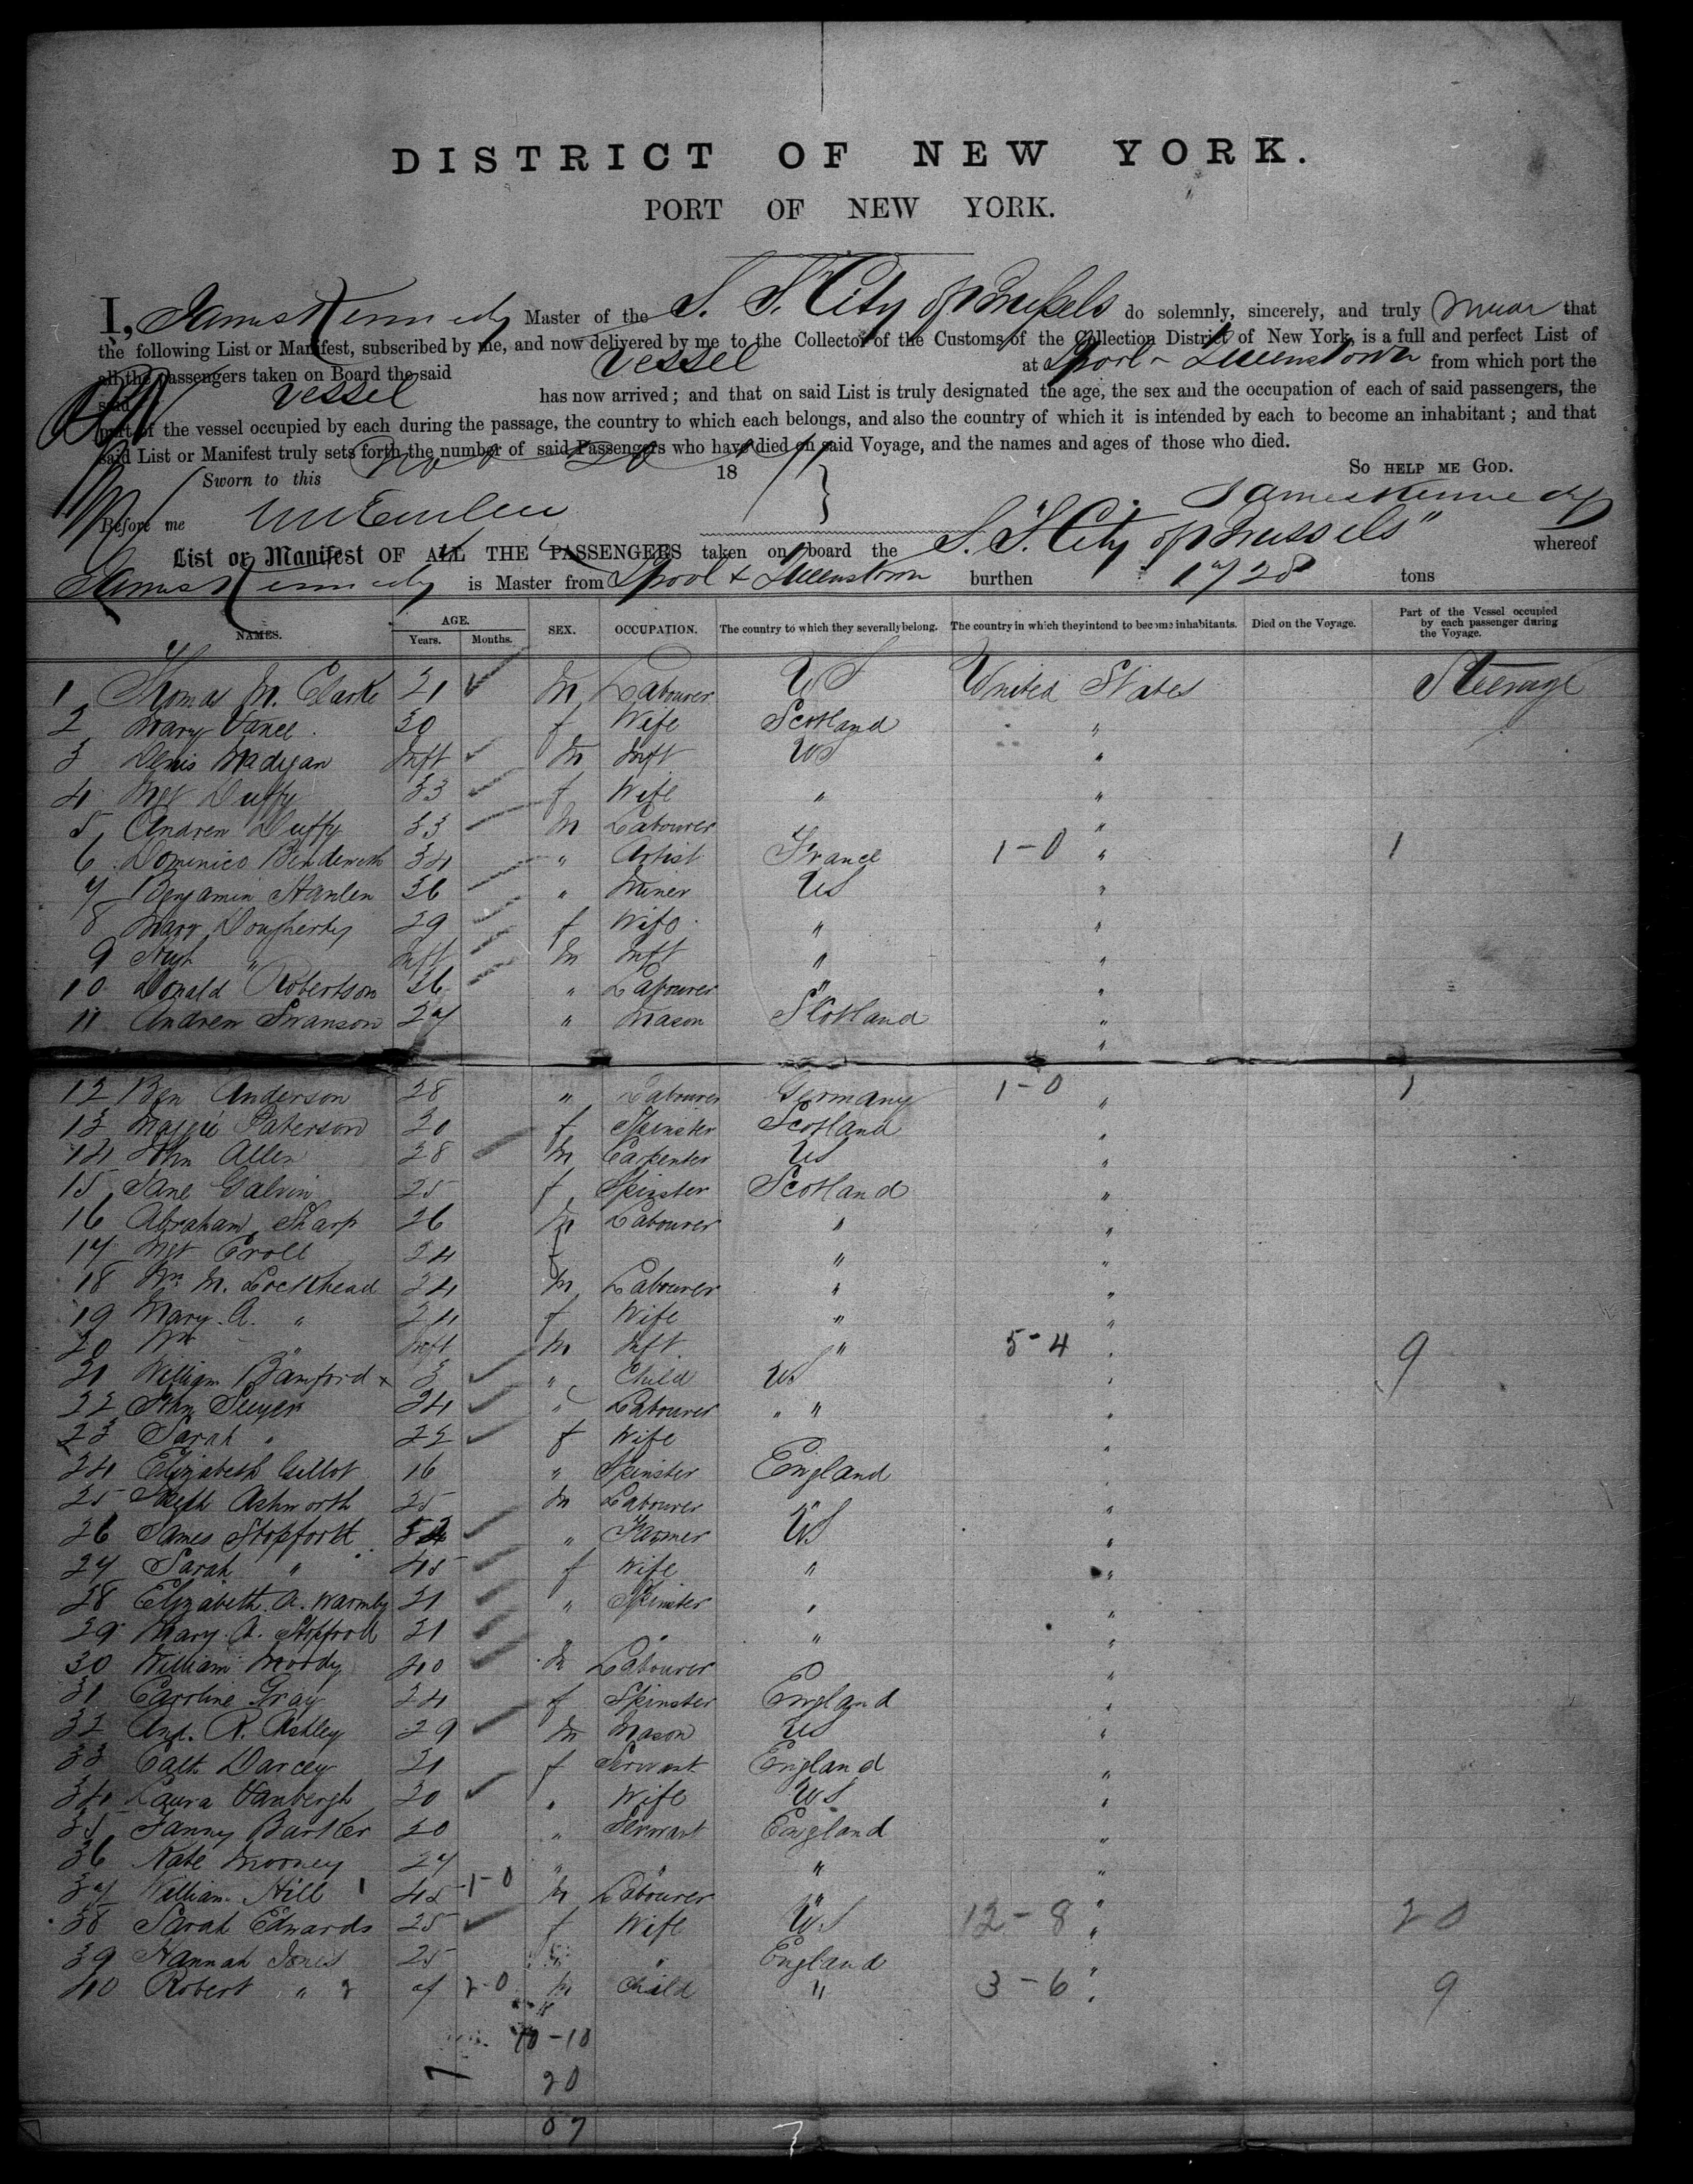 DISTRICT OF NEW YORK.
PORT OF NEW YORK.
I, James Kennedy Master of the S. S. City of Brussels do solemnly, sincerely, and truly swear that
the following List or Manifest, subscribed by me, and now delivered by me to the Collector of the Customs of the Collection District of New York, is a full and perfect List of
all the passengers taken on Board the said Vessel at Lpool - Queenstown from which port the
said Vessel has now arrived; and that on said List is truly designated the age, the sex and the occupation of each of said passengers, the
part of the vessel occupied by each during the passage, the country to which each belongs, and also the country of which it is intended by each to become an inhabitant; and that
said List or Manifest truly sets forth the number of said Passengers who have died on said Voyage, and the names and ages of those who died.
Sworn to this 18 So help me God.
Before me James Kennedy
List or Manifest OF ALL THE PASSENGERS taken on board the S. S. "City of Brussels" whereof
James Kennedy is Master from Lpool & Queenstown burthen 1728 tons
NAMES. AGE. Years. Months. SEX. OCCUPATION. The country to which they severally belong. The country in which they intend to become inhabitants. Died on the Voyage. Part of the Vessel occupied by each passenger during the Voyage.
1 Thomas M. Clarke 21 M Labourer US United States Steerage
2 Mary Vance 30 f Wife Scotland "
3 Denis Madigan Inft M Inft US "
4 Mgt Duffy 33 f Wife " "
5 Andrew Duffy 33 M Labourer "
6 Dominico 34 " Artist France 1-0 " 1
7 Benjamin Hanlen 36 " Miner US "
8 Mary Dougherty 29 f Wife " "
9 Hugh " Inft M Inft " "
10 Donald Robertson 36 " Labourer " "
11 Andrew Swanson 27 " Mason Scotland "
"
12 Ben Anderson 28 " Labourer Germany 1-0 " 1
13 Maggie Paterson 20 f Spinster Scotland "
14 John Allen 28 M Carpenter US "
15 Jane Galvin 25 f Spinster Scotland "
16 Abraham Sharp 26 M Labourer " "
17 Mgt Croll 24 f " "
18 Wm M. Lockhead 24 M Labourer " "
19 Mary A. " 24 f Wife " "
20 Wm " Inft M Inft " 5-4 " 9
21 William Bamford x 3 " Child US "
22 John 24 " Labourer " " "
23 Sarah " 22 f Wife "
24 Elizabeth Gillot 16 " Spinster England "
25 Ashworth 25 M Labourer " "
26 James Stopforth " Farmer US "
27 Sarah " 45 f Wife " "
28 Elizabeth A. Warmby 21 " Spinster " "
29 Mary A. Stopforth 21 " " " "
30 William Moody 40 M Labourer "
31 Caroline Gray 24 f Spinster England "
32 And. R. Ashley 29 M Mason US "
33 Cath Darcey 21 f Servant England "
34 Laura Vanbergh 30 " Wife US "
35 Fanny Barker 20 " Servant England "
36 Kate Mooney 27 " " " "
37 William Hill 1 45 1-0 M Labourer " "
38 Sarah Edwards 25 f Wife US 12-8 " 20
39 Hannah Jones 25 " England "
40 Robert " 2 7 2-0 M Child " 3-6 " 9
10-10
7 20
67